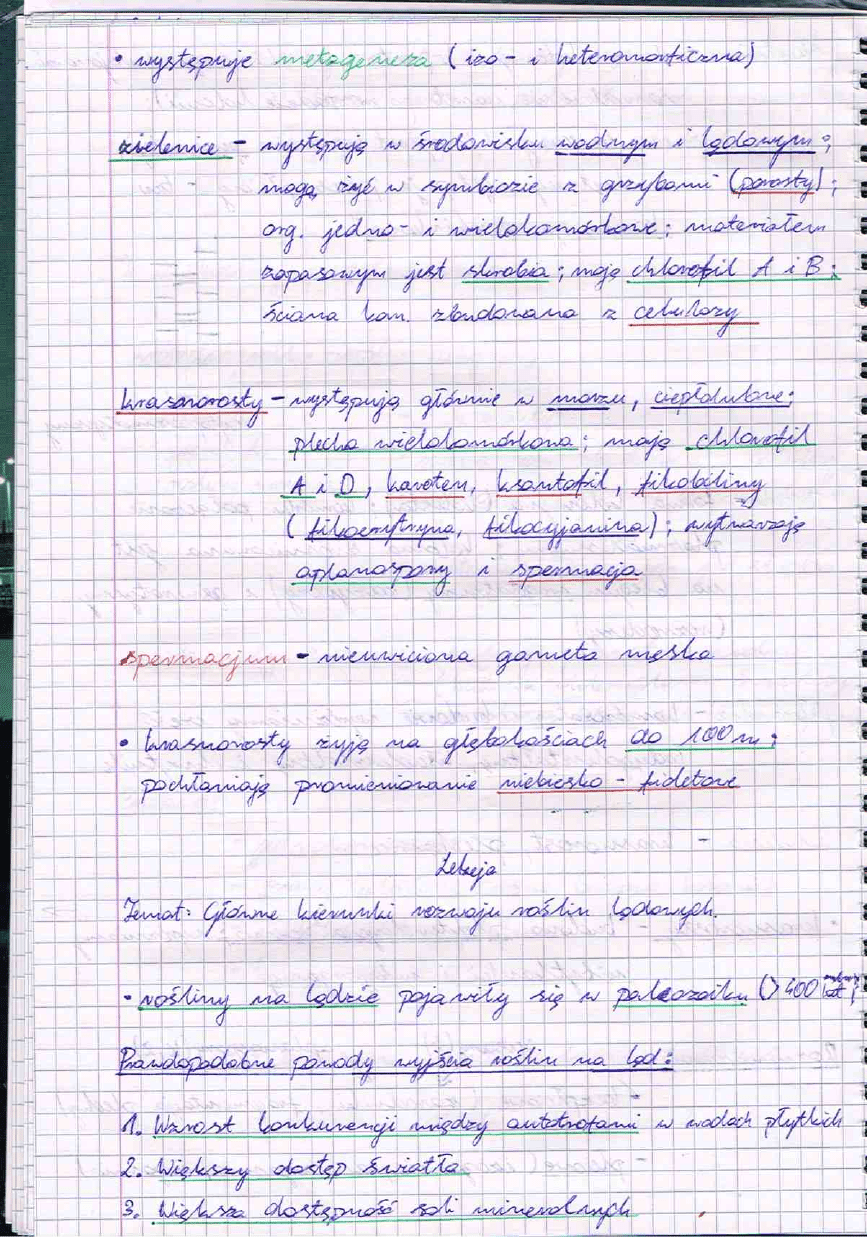 • występuje metageneza (izo- i heteromorficzna)
zielenice - występują w środowisku wodnym i lądowym;
mogą żyć w symbiozie z grzybami (porosty);
org. jedno- i wielokomórkowe; materiałem
zapasowym jest skrobia; mają chlorofil A i B;
ściana kom. zbudowana z celulozy
krasnorosty - występują głównie w morzu, ciepłolubne;
plecha wielokomórkowa; mają chlorofil
A i D, karoten, ksantofil, fikobiliny
(fikoerytryna, fikocyjanina); wytwarzają
aplanospory i spermacja
spermacjum - nieuwiciona gameta męska
• krasnorosty żyją na głębokościach do 100 m;
pochłaniają promieniowanie niebiesko - fioletowe
Lekcja
Temat: Główne kierunki rozwoju roślin lądowych.
• rośliny na lądzie pojawiły się w paleozoiku (> 400 lat)
Prawdopodobne powody wyjścia roślin na ląd:
1. Wzrost konkurencji między autotrofami w wodach płytkich
2. Większy dostęp światła
3. Większa dostępność soli mineralnych